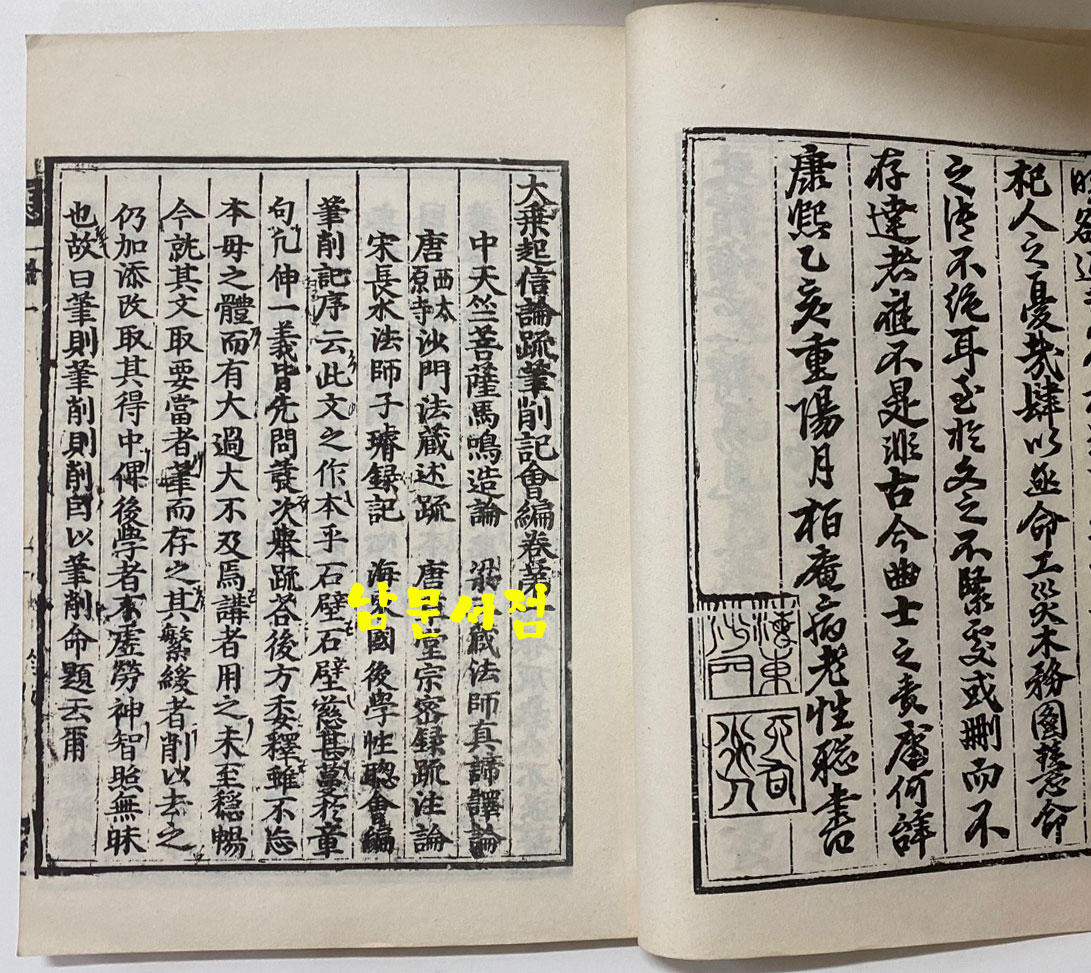 杞人之憂茲肆以亟命工災木務圖慧命
之濟不絶耳至於文之不緊處或刪而不
存達者雖不是非古今曲士之責庸何辭
康熙乙亥重陽月栢庵病老性聡書
大乗起信論疏筆削記會編卷第一
中天竺菩薩馬鳴造論 梁 藏法師真諦譯論
唐西太原寺沙門法藏述疏 唐 堂宗密録疏注論
宋長水法師子璿録記 海東國後學性聰會編
筆削記序云此文之作本乎石壁石壁慈甚蔓於章
句凡伸一義皆先問發次舉疏荅後方委釋雖不忘
本母之體而有大過大不及焉講者用之未至穏暢
今就其文取要當者筆而存之其繁緩者削以去之
仍加添改取其得中俾後學者不虛勞神智照無昧
也故曰筆則筆削則削因以筆削命題云爾
남문서점